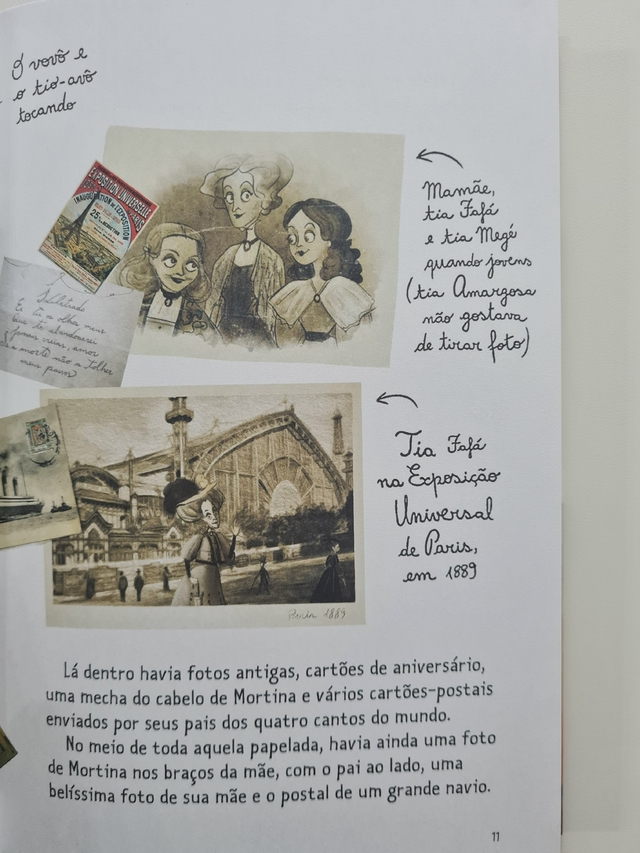 O vovô e
o tio-avô
tocando
EXPOSITION UNIVERSELLE
PARIS
INAUGURATION DE L'EXPOSITION
25%
Mamãe,
tia Fafá
e tia Megé
quando jovens
(tia Amargosa
não gostava
de tirar foto)
Tia Fafá
na Exposição
Universal
de Paris,
em 1889
1889
Lá dentro havia fotos antigas, cartões de aniversário,
uma mecha do cabelo de Mortina e vários cartões-postais
enviados por seus pais dos quatro cantos do mundo.
No meio de toda aquela papelada, havia ainda uma foto
de Mortina nos braços da mãe, com o pai ao lado, uma
belíssima foto de sua mãe e o postal de um grande navio.
11